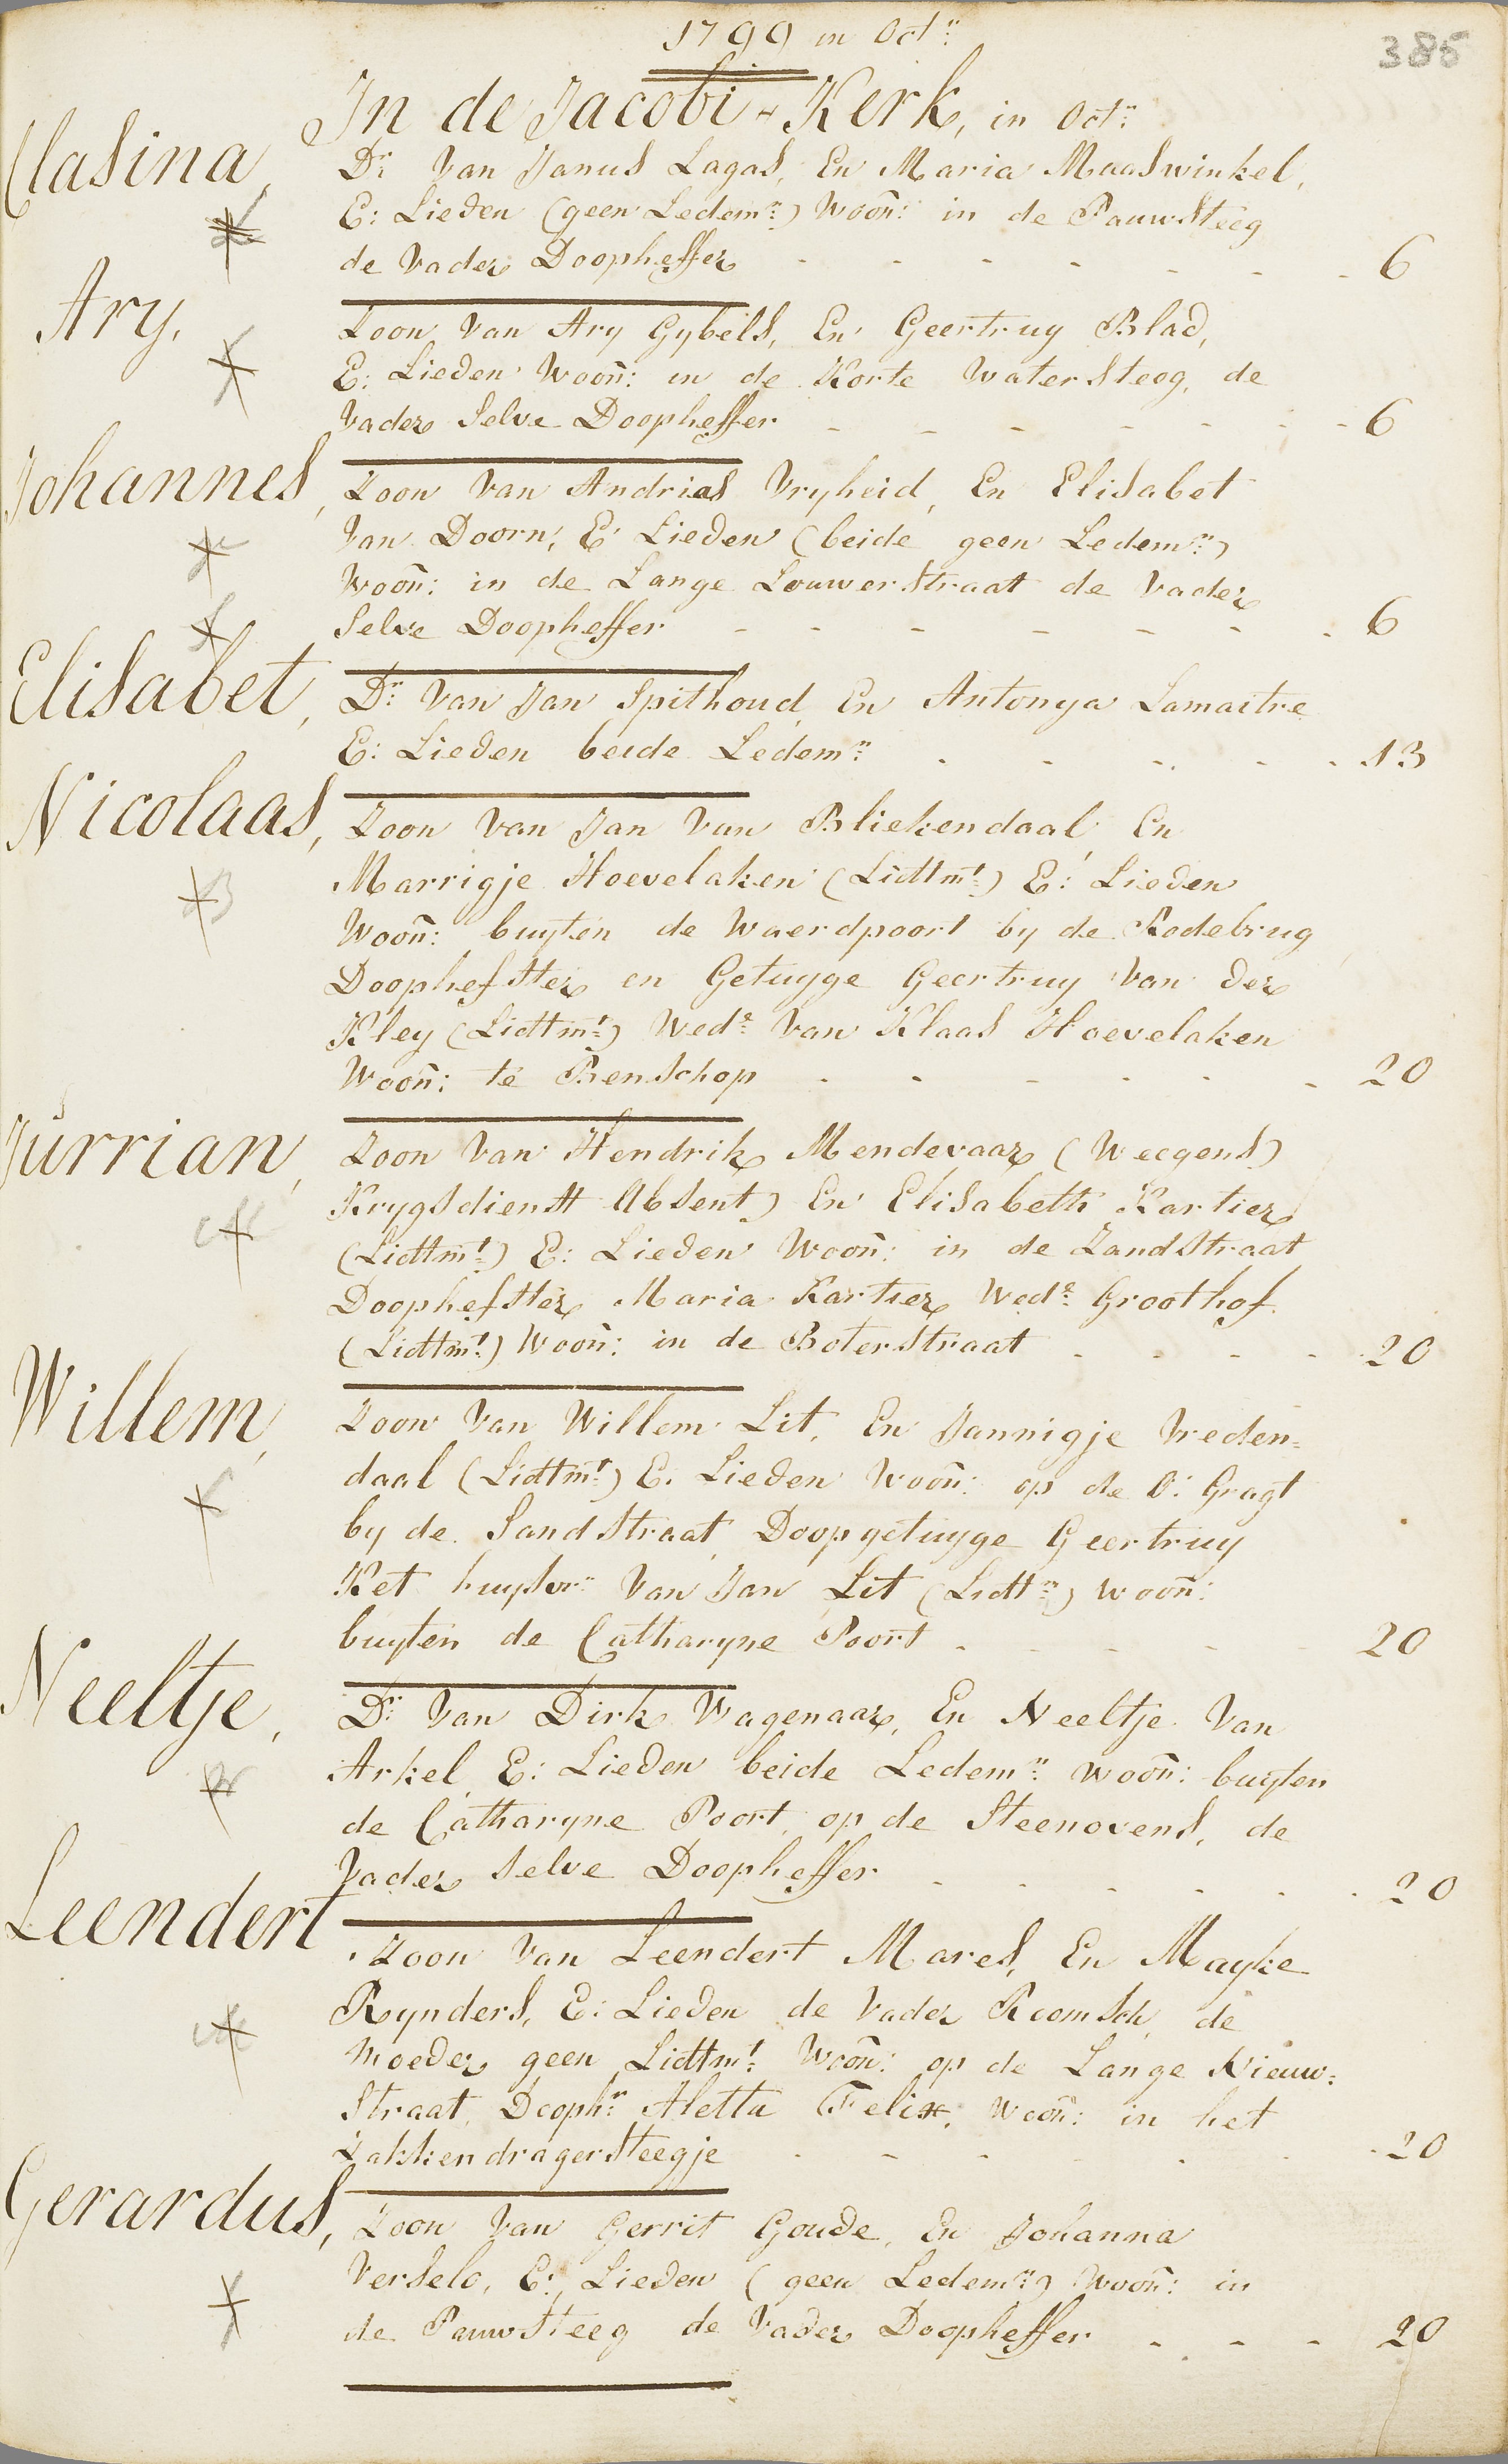 1799 in Octr:
385
In de Jacobi-Kerk, in Octr:
Clasina, Dr: Van Janus Lagas, En Maria Maaswinkel,
E: Lieden (geen Ledemn:) Woon̄: in de Pauwsteeg
de Vader Doopheffer - - - - - - - 6
Ary. Zoon Van Ary Gybels, En Geertruy Blad,
E: Lieden Woon̄: in de Korte Watersteeg, de
Vader Selve Doopheffer - - - - - - - 6
Johannes, Zoon Van Andrias Vryheid, En Elisabet
Van Doorn, E: Lieden (beide geen Ledemn:)
Woon̄: in de Lange Louwerstraat de Vader
Selve Doopheffer - - - - - - - 6
Elisabet, Dr: Van Jan Spithoud En Antonya Lamaitre
E: Lieden beide Ledemn: - - - - - 13
Nicolaas, Zoon Van Jan Van Bliekendaal, En
Marrigje Hoevelaken (Lidtmt:) E: Lieden
Woon̄: buyten de Waerdpoort by de Rodebrug
Doophefster en Getuyge Geertruy Van der
Kley (Lidtmt:) Wede: Van Klaas Hoevelaken
Woon̄: te Benschop - - - - - - 20
Jurrian, Zoon Van Hendrik Mendevaar (Weegens
Krygsdienst Absent) En Elisabeth Kartier
(Lidtmt:) E: Lieden Woon̄: in de Zandstraat
Doophefster Maria Kartier Wede: Groothof
(Lidtmt:) Woon̄: in de Boterstraat - - - - 20
Willem, Zoon Van Willem Lit, En Jannigje Vreden=
daal (Lidtmt:) E: Lieden Woon̄: op de O: Gragt
by de Sandstraat, Doopgetuyge Geertruy
Ket huysvr: Van Jan Lit (Lidtn:) Woon̄:
buyten de Catharyne Poort - - - - - 20
Neeltje, Dr: Van Dirk Wagenaar, En Neeltje Van
Arkel, E: Lieden beide Ledemn: Woon̄: buyten
de Catharyne Poort, op de Steenovens, de
Vader Selve Doopheffer - - - - - - 20
Leendert Zoon Van Leendert Mares, En Mayke
Rynders, E: Lieden de Vader Roomsch, de
Moeder geen Lidtmt: Woon̄: op de Lange Nieuw=
Straat, Doophr: Aletta Felix, Woon̄: in het
Zakkendragersteegje - - - - - - 20
Gerardus, Zoon Van Gerrit Goude, En Johanna
Verselo, E: Lieden (geen Ledemn:) Woon̄: in
de Pauwsteeg de Vader Doopheffer - - - 20